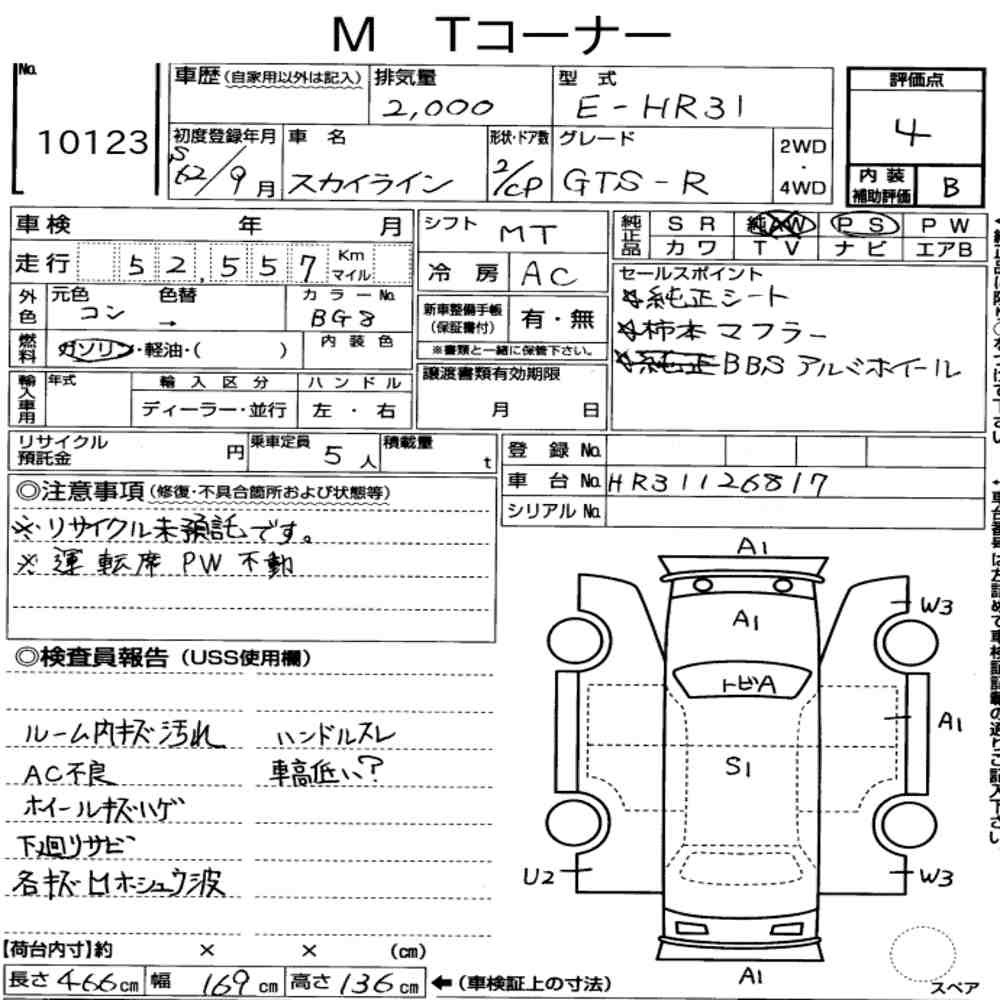 M Tコーナー
No. 10123
車歴 (自家用以外は記入)
排気量 2,000
型式 E-HR31
評価点 4
内装補助評価 B
初度登録年月 S62/9月
車名 スカイライン
形状・ドア数 2/CP
グレード GTS-R
2WD・4WD
車検 年 月
走行 52,557 Km マイル
外色 元色 コン 色替 →
カラーNo. BG8
燃料 ガソリン・軽油・( )
内装色
輸入車用 年式
輸入区分 ディーラー・並行
ハンドル 左・右
シフト MT
冷房 AC
新車整備手帳 (保証書付) 有・無
※書類と一緒に保管下さい。
譲渡書類有効期限
月 日
純正品 SR 純AW PS PW
カワ TV ナビ エアB
セールスポイント
☆純正シート
☆柿本マフラー
☆純正BBSアルミホイール
リサイクル預託金 円
乗車定員 5人
積載量 t
登録No.
車台No. HR31126817
シリアルNo.
◎注意事項 (修復・不具合箇所および状態等)
※リサイクル未預託です。
※運転席PW不動
◎検査員報告 (USS使用欄)
ルーム内キズ汚れ ハンドルスレ
AC不良 車高低い?
ホイールキズハゲ
下廻りサビ
各キズ凹ホシュウ波
A1
A1
W3
トビA
A1
S1
U2
W3
A1
スペア
【荷台内寸】約 × × (cm)
長さ 466cm 幅 169cm 高さ 136cm ←(車検証上の寸法)